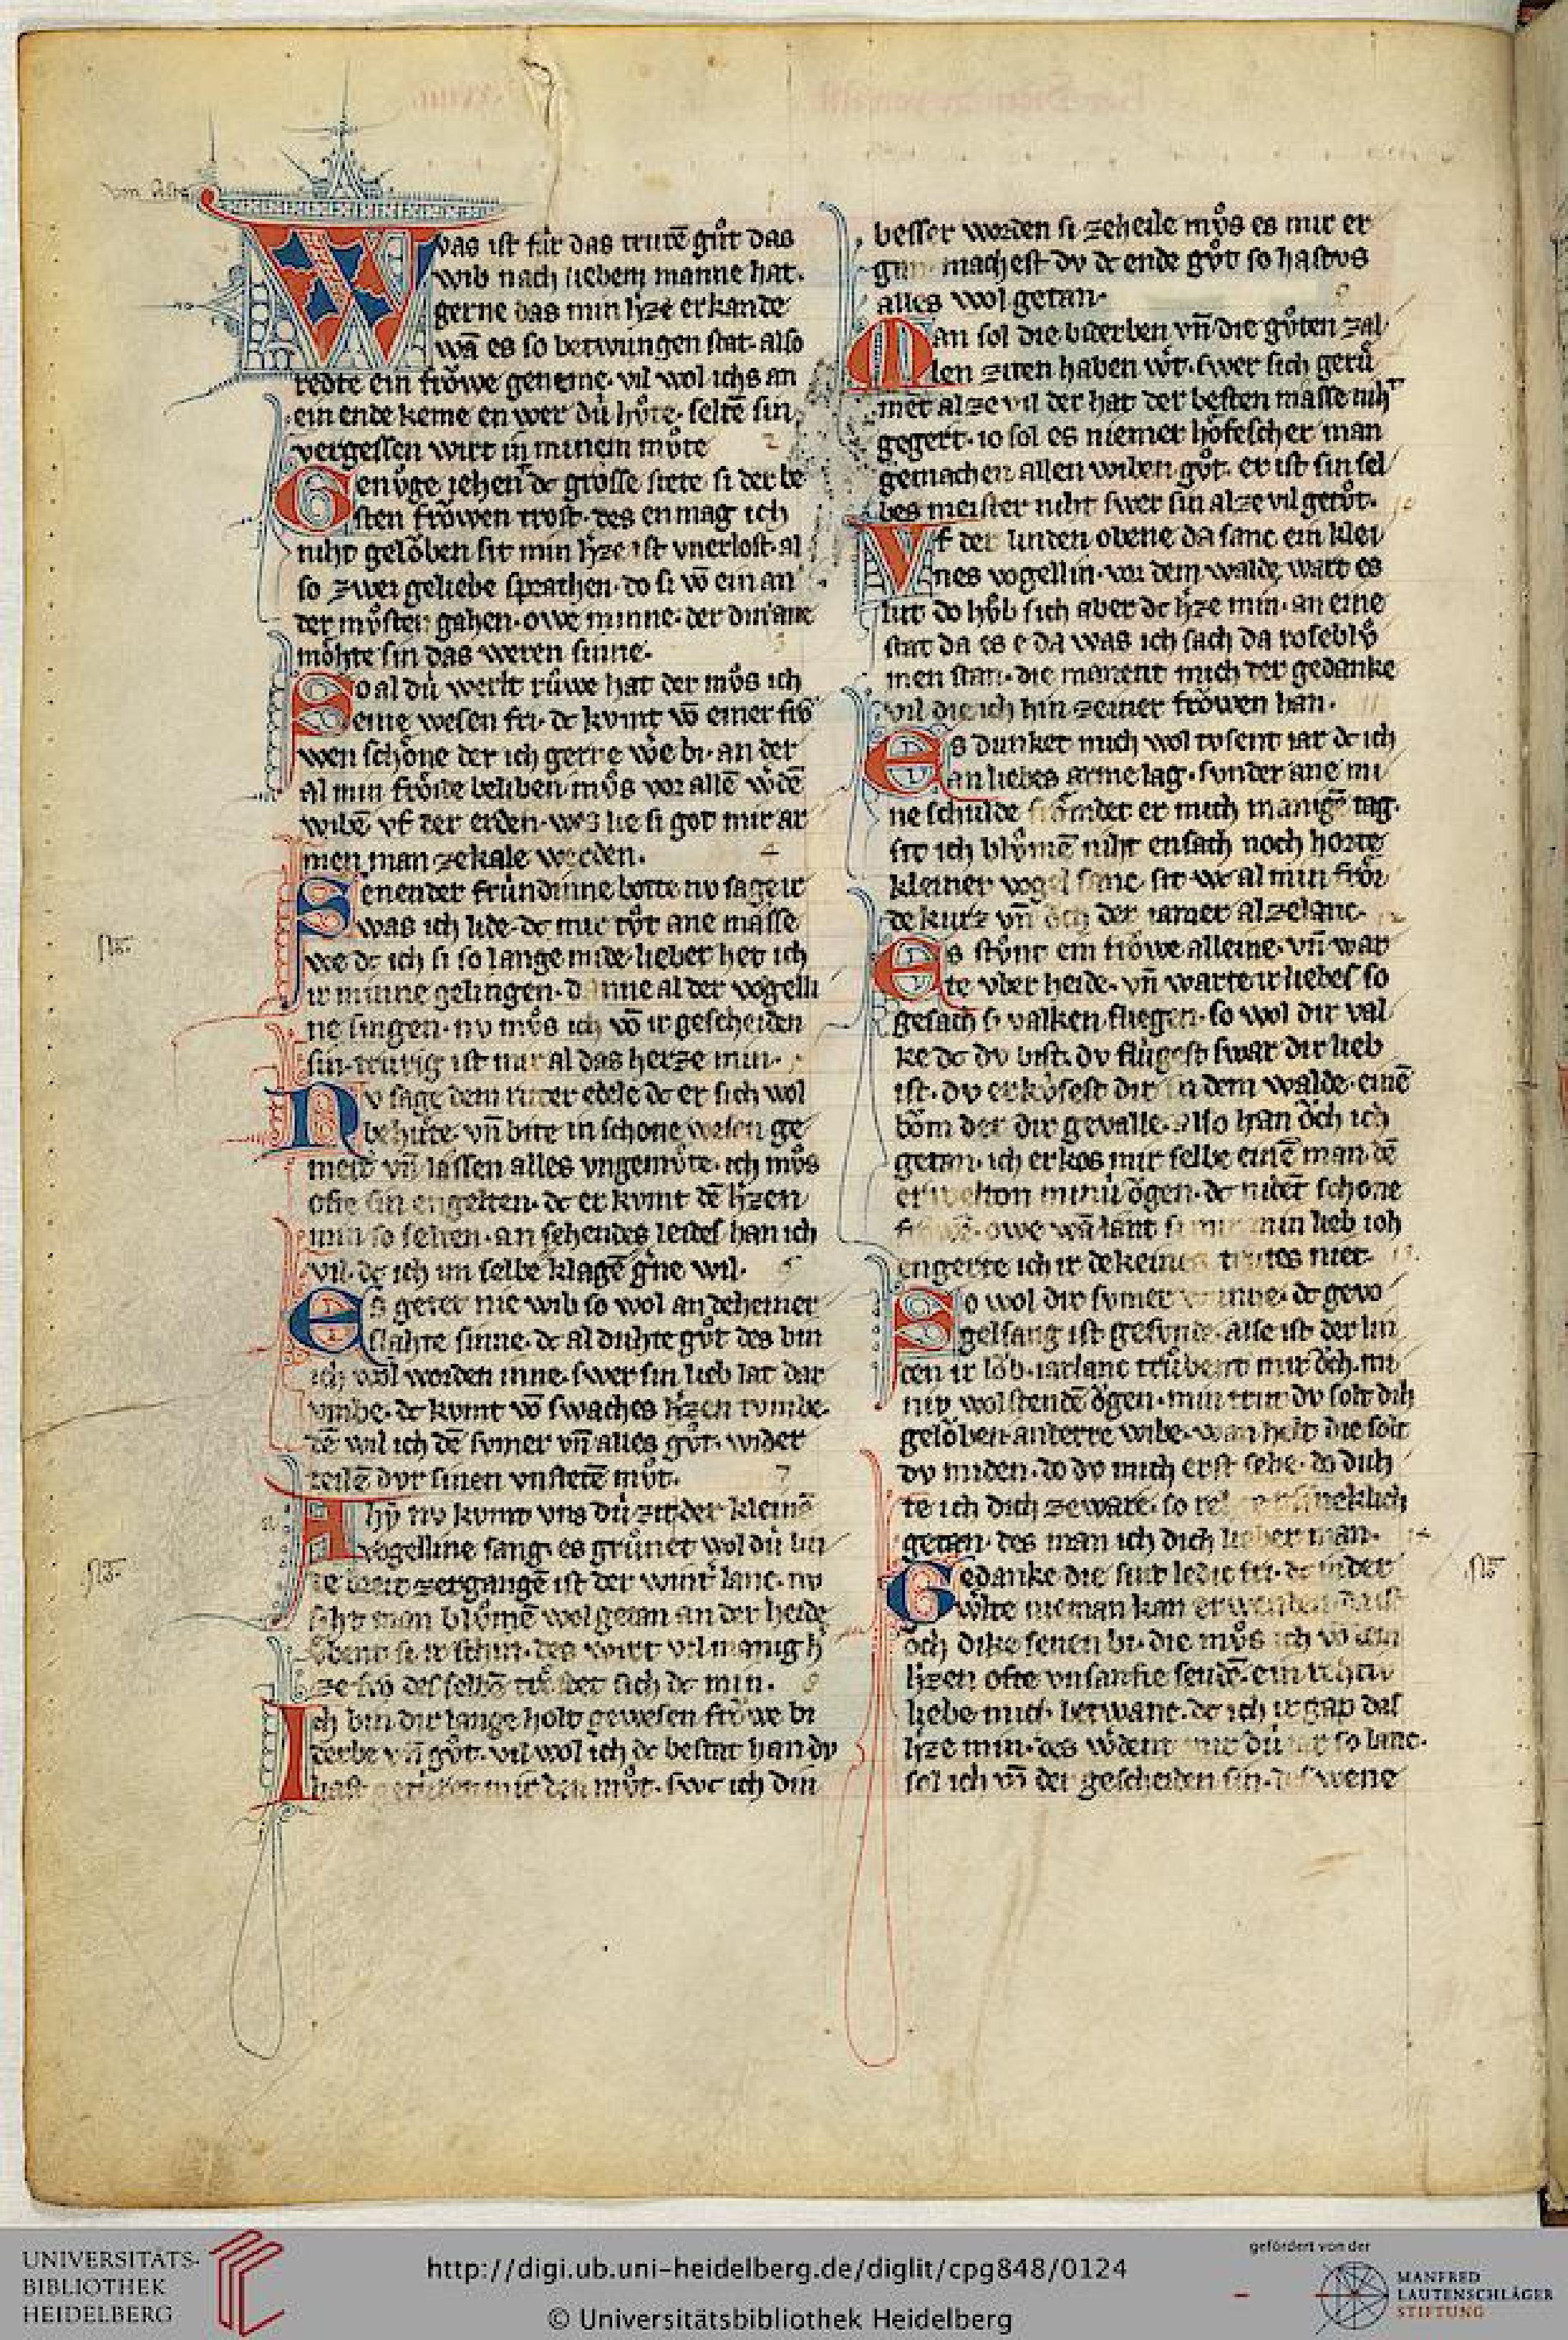 von Aste
Was ist fúr das trurē gůt das
wib nach liebem manne hat.
gerne das min h̾ze erkande
wā es so betwungen stat. also
redte ein frŏwe geneme. vil wol ichs an
ein ende keme en wer dú hůte. seltē sin
vergessen wirt in minem můte
2
Genůge iehen dc grosse stete si der be
sten frŏwen trost. des enmag ich
niht gelŏben sit min h̾ze ist vnerlost. al
so zwei geliebe sprachen. do si vō ein an
der můsten gahen. owe minne. der din ane
mŏhte sin das weren sinne.
3
So al dú werlt růwe hat der můs ich
eine wesen fri. dc kvmt vō einer frŏ
wen schŏne der ich gerne we̾ bi. an der
al min frŏide beliben můs vor allē w̾dē
wibē vf der erden. wes lie si got mir ar
men man zekale werden.
4
Senender frúndinne botte nv sage ir
was ich lide. dc mir tůt ane masse
we dc ich si so lange mide. lieber het ich
ir minne gelingen. danne al der vogelli
ne singen. nv můs ich vō ir gescheiden
sin. trurig ist mir al das herze min.
Nv sage dem ritter edele dc er sich wol
behůte. vn̄ bite in schone wesen ge
meit vn̄ lassen alles vngemůte. ich můs
ofte sin engelten. dc er kvmt dē h̾zen
min so selten. an sehendes leides han ich
vil. dc ich im selbe klagē g̾ne wil.
6
Es getet nie wib so wol an deheiner
slahte sinne. dc al dúhte gůt des bin
ich wol worden inne. swer sin lieb lat dar
vmbe. dc kvmt vō swaches h̾zen tvmbe.
dē wil ich dē svmer vn̄ alles gůt. wider
teilē dvr sinen vnstetē můt.
7
Ahy nv kvmt vns dú zit der kleinē
vogelline sang. es grůnet wol dú lin
de breit zergangē ist der wint̾ lanc. nv
siht man blůmē wolgetan an der heide
ůbent si ir schin. des wirt vil manig h̾
ze fro des selbē trŏstet sich dc min.
8
Ich bin dir lange holt gewesen frŏwe bi
derbe vn̄ gůt. vil wol ich dc bestat han dv
hast getúret mir den můt. swc ich din
besser worden si zeheile můs es mir er
gan machest dv dc ende gůt so hastvs
alles wol getan.
9
Man sol die biderben vn̄ die gůten zal
len ziten haben w̾t. swer sich gerů
met alze vil der hat der besten masse niht
gegert. io sol es niemer hŏfescher man
gemachen allen wiben gůt. er ist sin sel
bes meister niht swer sin alze vil getůt.
10
Vf der linden obene da sanc ein klei
nes vogellin. vor dem walde wart es
lut do hůb sich aber dc h̾ze min. an eine
stat da es e da was ich sach da rosebl​ů
men stan. die manent mich der gedanke
vil die ich hin zeiner frŏwen han.
11
Es dunket mich wol tvsent iar dc ich
an liebes arme lag. sunder ane mi
ne schulde frŏmdet er mich manigē tag.
sit ich blůmē niht ensach noch horte
kleiner vogel sanc sit we̾ al min frŏi
de kurz vn̄ ŏch der iamer alzelanc.
12
Es stůnt ein frŏwe alleine. vn̄ war
te vber heide. vn̄ warte ir liebes so
gesach si valken fliegen. so wol dir val
ke dc dv bist. dv flúgest swar dir lieb
ist. dv erkúsest dir in dem walde. einē
bŏm der dir gevalle. also han ŏch ich
getan. ich erkos mir selbe einē man. dē
erwelton minú ŏgen. dc nident schone
frŏwē. owe wā lant si mir min lieb ioh
engerte ich ir dekeines trutes niet.
So wol dir svmer wunne. dc gevo
gelsang ist gesvnde. alse ist der lin
den ir lŏb. iarlanc trůbent mir ŏch. mi
nv wol stendē ŏgen. min trut dv solt dih
gelŏben anderre wibe. wan helt die solt
dv miden. do dv mich erst sehe. do duh
te ich dich zeware. so rehte minneklich
getan. des man ich dich lieber man.
14
Gedanke die sint ledic fri. dc in der
w̾lte nieman kan erwenden. da ist
ŏch dike senen bi. die můs ich vō
h̾zen ofte vnsanfte sendē. ein rehtú
liebe mich betwanc. dc ich ir gap das
h̾ze min. des w̾dent mir dú iar so lanc.
sol ich vō der gescheiden sin. des wene
UNIVERSITÄTS-
BIBLIOTHEK
HEIDELBERG
http://digi.ub.uni-heidelberg.de/diglit/cpg848/0124
© Universitätsbibliothek Heidelberg
gefördert von der
MANFRED
LAUTENSCHLÄGER
STIFTUNG